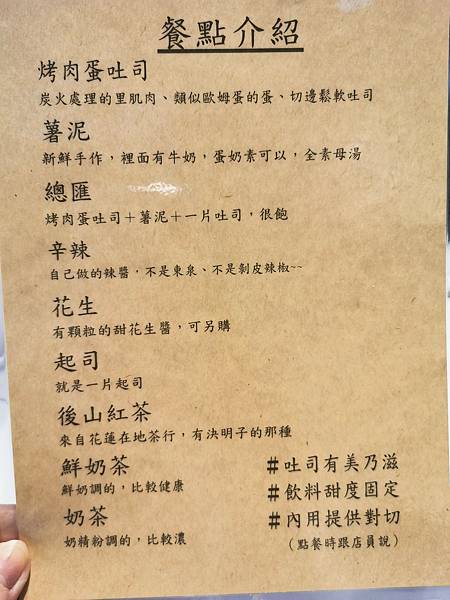 餐點介紹
烤肉蛋吐司
炭火處理的里肌肉、類似歐姆蛋的蛋、切邊鬆軟吐司
薯泥
新鮮手作，裡面有牛奶，蛋奶素可以，全素母湯
總匯
烤肉蛋吐司＋薯泥＋一片吐司，很飽
辛辣
自己做的辣醬，不是東泉、不是剝皮辣椒~~
花生
有顆粒的甜花生醬，可另購
起司
就是一片起司
後山紅茶
來自花蓮在地茶行，有決明子的那種
鮮奶茶
鮮奶調的，比較健康
奶茶
奶精粉調的，比較濃
#吐司有美乃滋
#飲料甜度固定
#內用提供對切
（點餐時跟店員說）